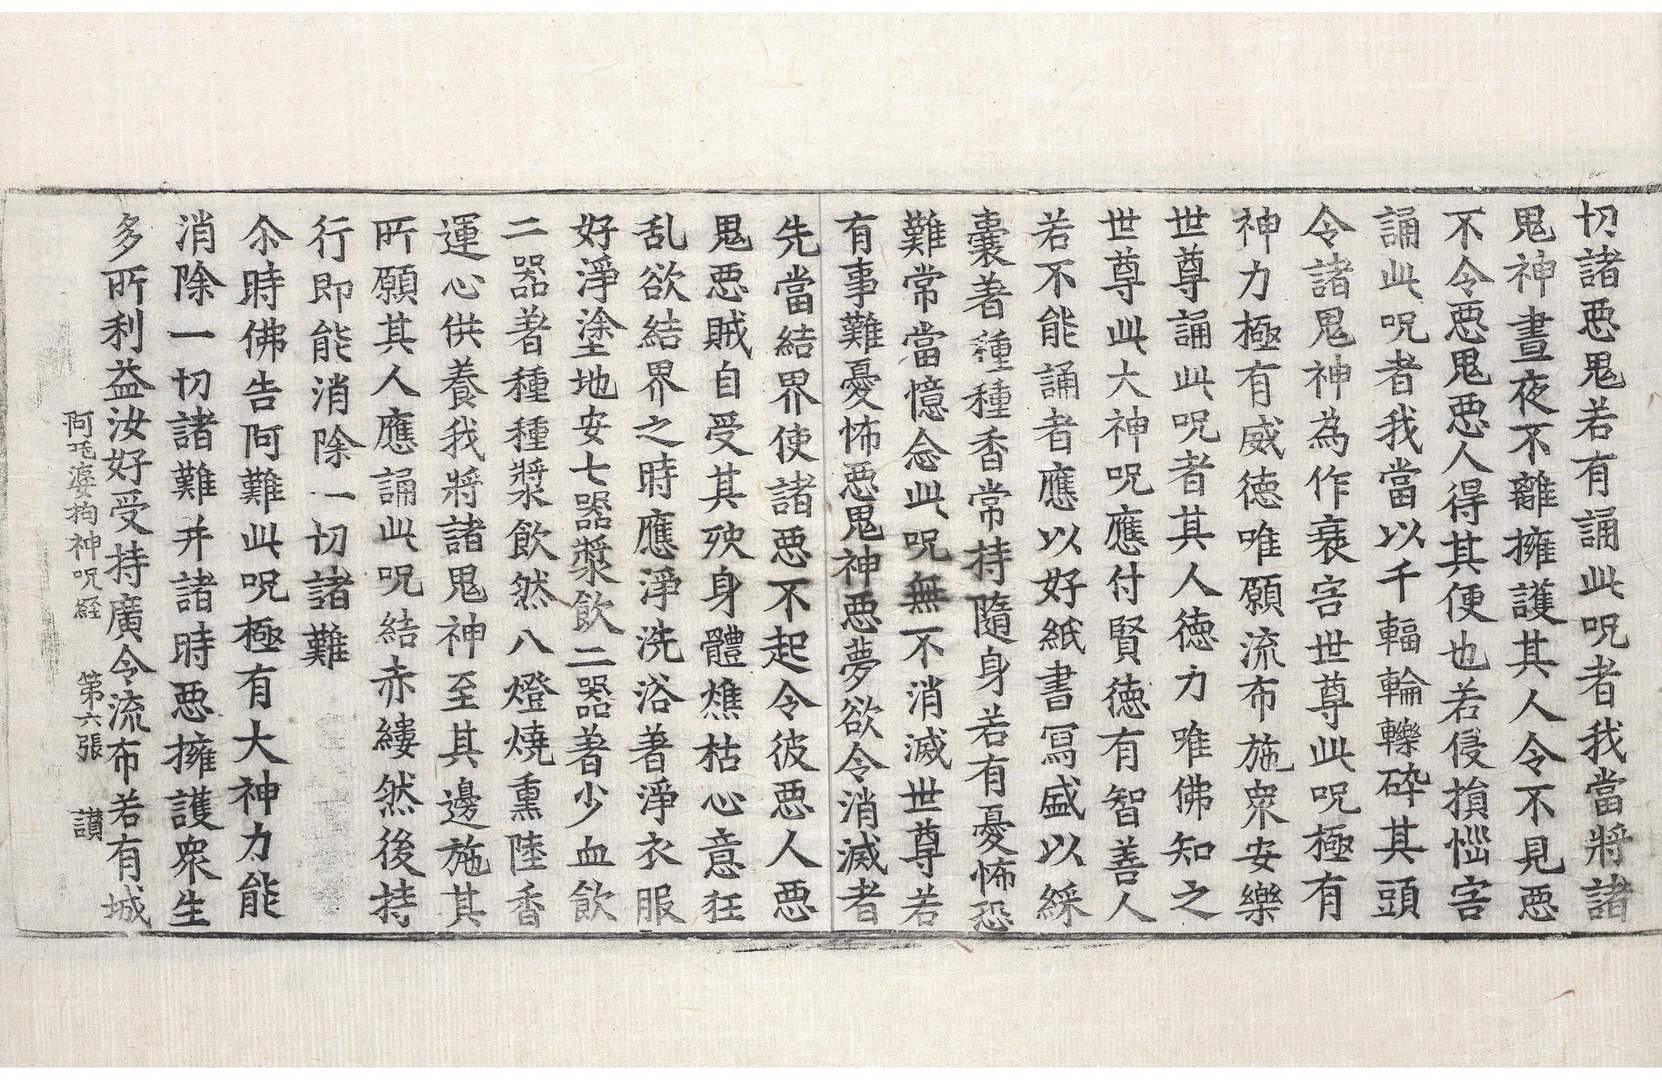 切諸惡鬼若有誦此呪者我當將諸
鬼神晝夜不離擁護其人令不見惡
不令惡鬼惡人得其便也若侵損惱害
誦此呪者我當以千輻輪轢碎其頭
令諸鬼神為作衰害世尊此呪極有
神力極有威徳唯願流布施衆安樂
世尊誦此呪者其人徳力唯佛知之
世尊此大神呪應付賢徳有智善人
若不能誦者應以好紙書寫盛以綵
囊著種種香常持隨身若有憂怖恐
難常當憶念此呪無不消滅世尊若
有事難憂怖惡鬼神惡夢欲令消滅者
先當結界使諸惡不起令彼惡人惡
鬼惡賊自受其殃身體燋枯心意狂
乱欲結界之時應淨洗浴著淨衣服
好淨塗地安七器漿飲二器著少血飲
二器著種種漿飲然八燈燒熏陸香
運心供養我將諸鬼神至其邊施其
所願其人應誦此呪結赤縷然後持
行即能消除一切諸難
尒時佛告阿難此呪極有大神力能
消除一切諸難并諸時惡擁護衆生
多所利益汝好受持廣令流布若有城
阿吒婆拘神呪経 第六張 讃